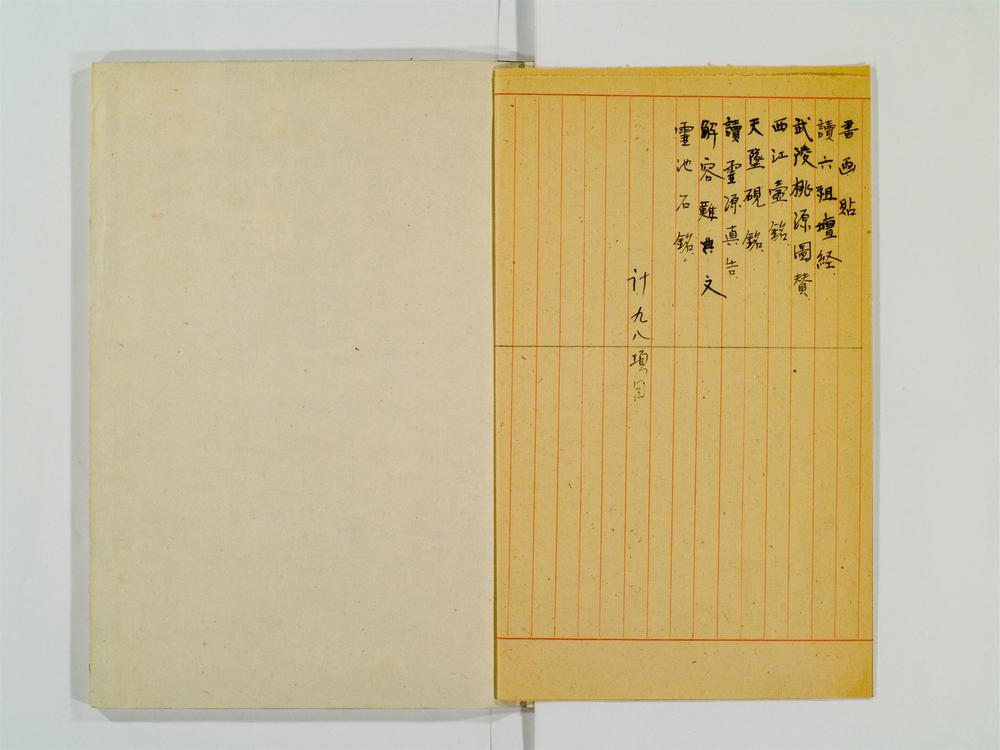 書画貼
讀六祖壇経
武陵桃源図賛
西江壷銘
天墜硯銘
讀霊源真告
解容難典文
霊池石銘
計九八項目